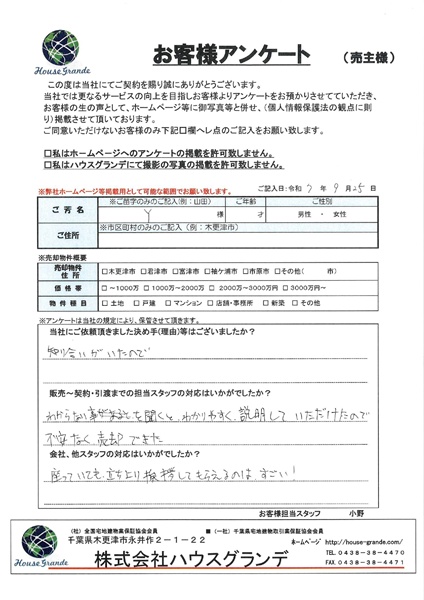 House Grande
お客様アンケート
(売主様)
この度は当社にてご契約を賜り誠にありがとうございます。
当社では更なるサービスの向上を目指しお客様よりアンケートをお預かりさせていただき、
お客様の生の声として、ホームページ等に御写真等と併せ、(個人情報保護法の観点に則
り)掲載させて頂いております。
ご同意いただけないお客様のみ下記口欄へレ点のご記入をお願い致します。
□私はホームページへのアンケートの掲載を許可致しません。
□私はハウスグランデにて撮影の写真の掲載を許可致しません。
※弊社ホームページ等掲載用として可能な範囲でお願い致します。 ご記入日:令和 7 年 9 月 25 日
ご芳名 ※ご苗字のみのご記入(例:山田) ご年齢 ご性別
Y 様 才 男性 ・ 女性
ご住所 ※市区町村のみのご記入(例:木更津市)
※売却物件概要
売却物件住所 □木更津市 □君津市 □富津市 □袖ケ浦市 □市原市 □その他( 市)
価格帯 □ ~1000万 □ 1000万~2000万 □ 2000万~3000万円 □ 3000万円~
物件種目 □ 土地 □ 戸建 □ マンション □ 店舗・事務所 □ 新築 □ その他
※アンケートは当社の規定により、保管させて頂きます。
当社にご依頼頂きました決め手(理由)等はございましたか?
知り合いがいたので
販売~契約・引渡までの担当スタッフの対応はいかがでしたか?
わからない事がを聞くと、わかりやすく、説明して いただけたので
不安なく 売却 できた
会社、他スタッフの対応はいかがでしたか?
座っていても立ち上り挨拶してもらえるのは すごい!
お客様担当スタッフ 小野
House Grande
(社)全国宅地建物業保証協会会員 ■(一社)千葉県宅地建物取引業保証協会会員
千葉県木更津市永井作2-1-22
株式会社ハウスグランデ
ホームページ http://house-grande.com/
TEL.0438-38-4470
FAX.0438-38-4471